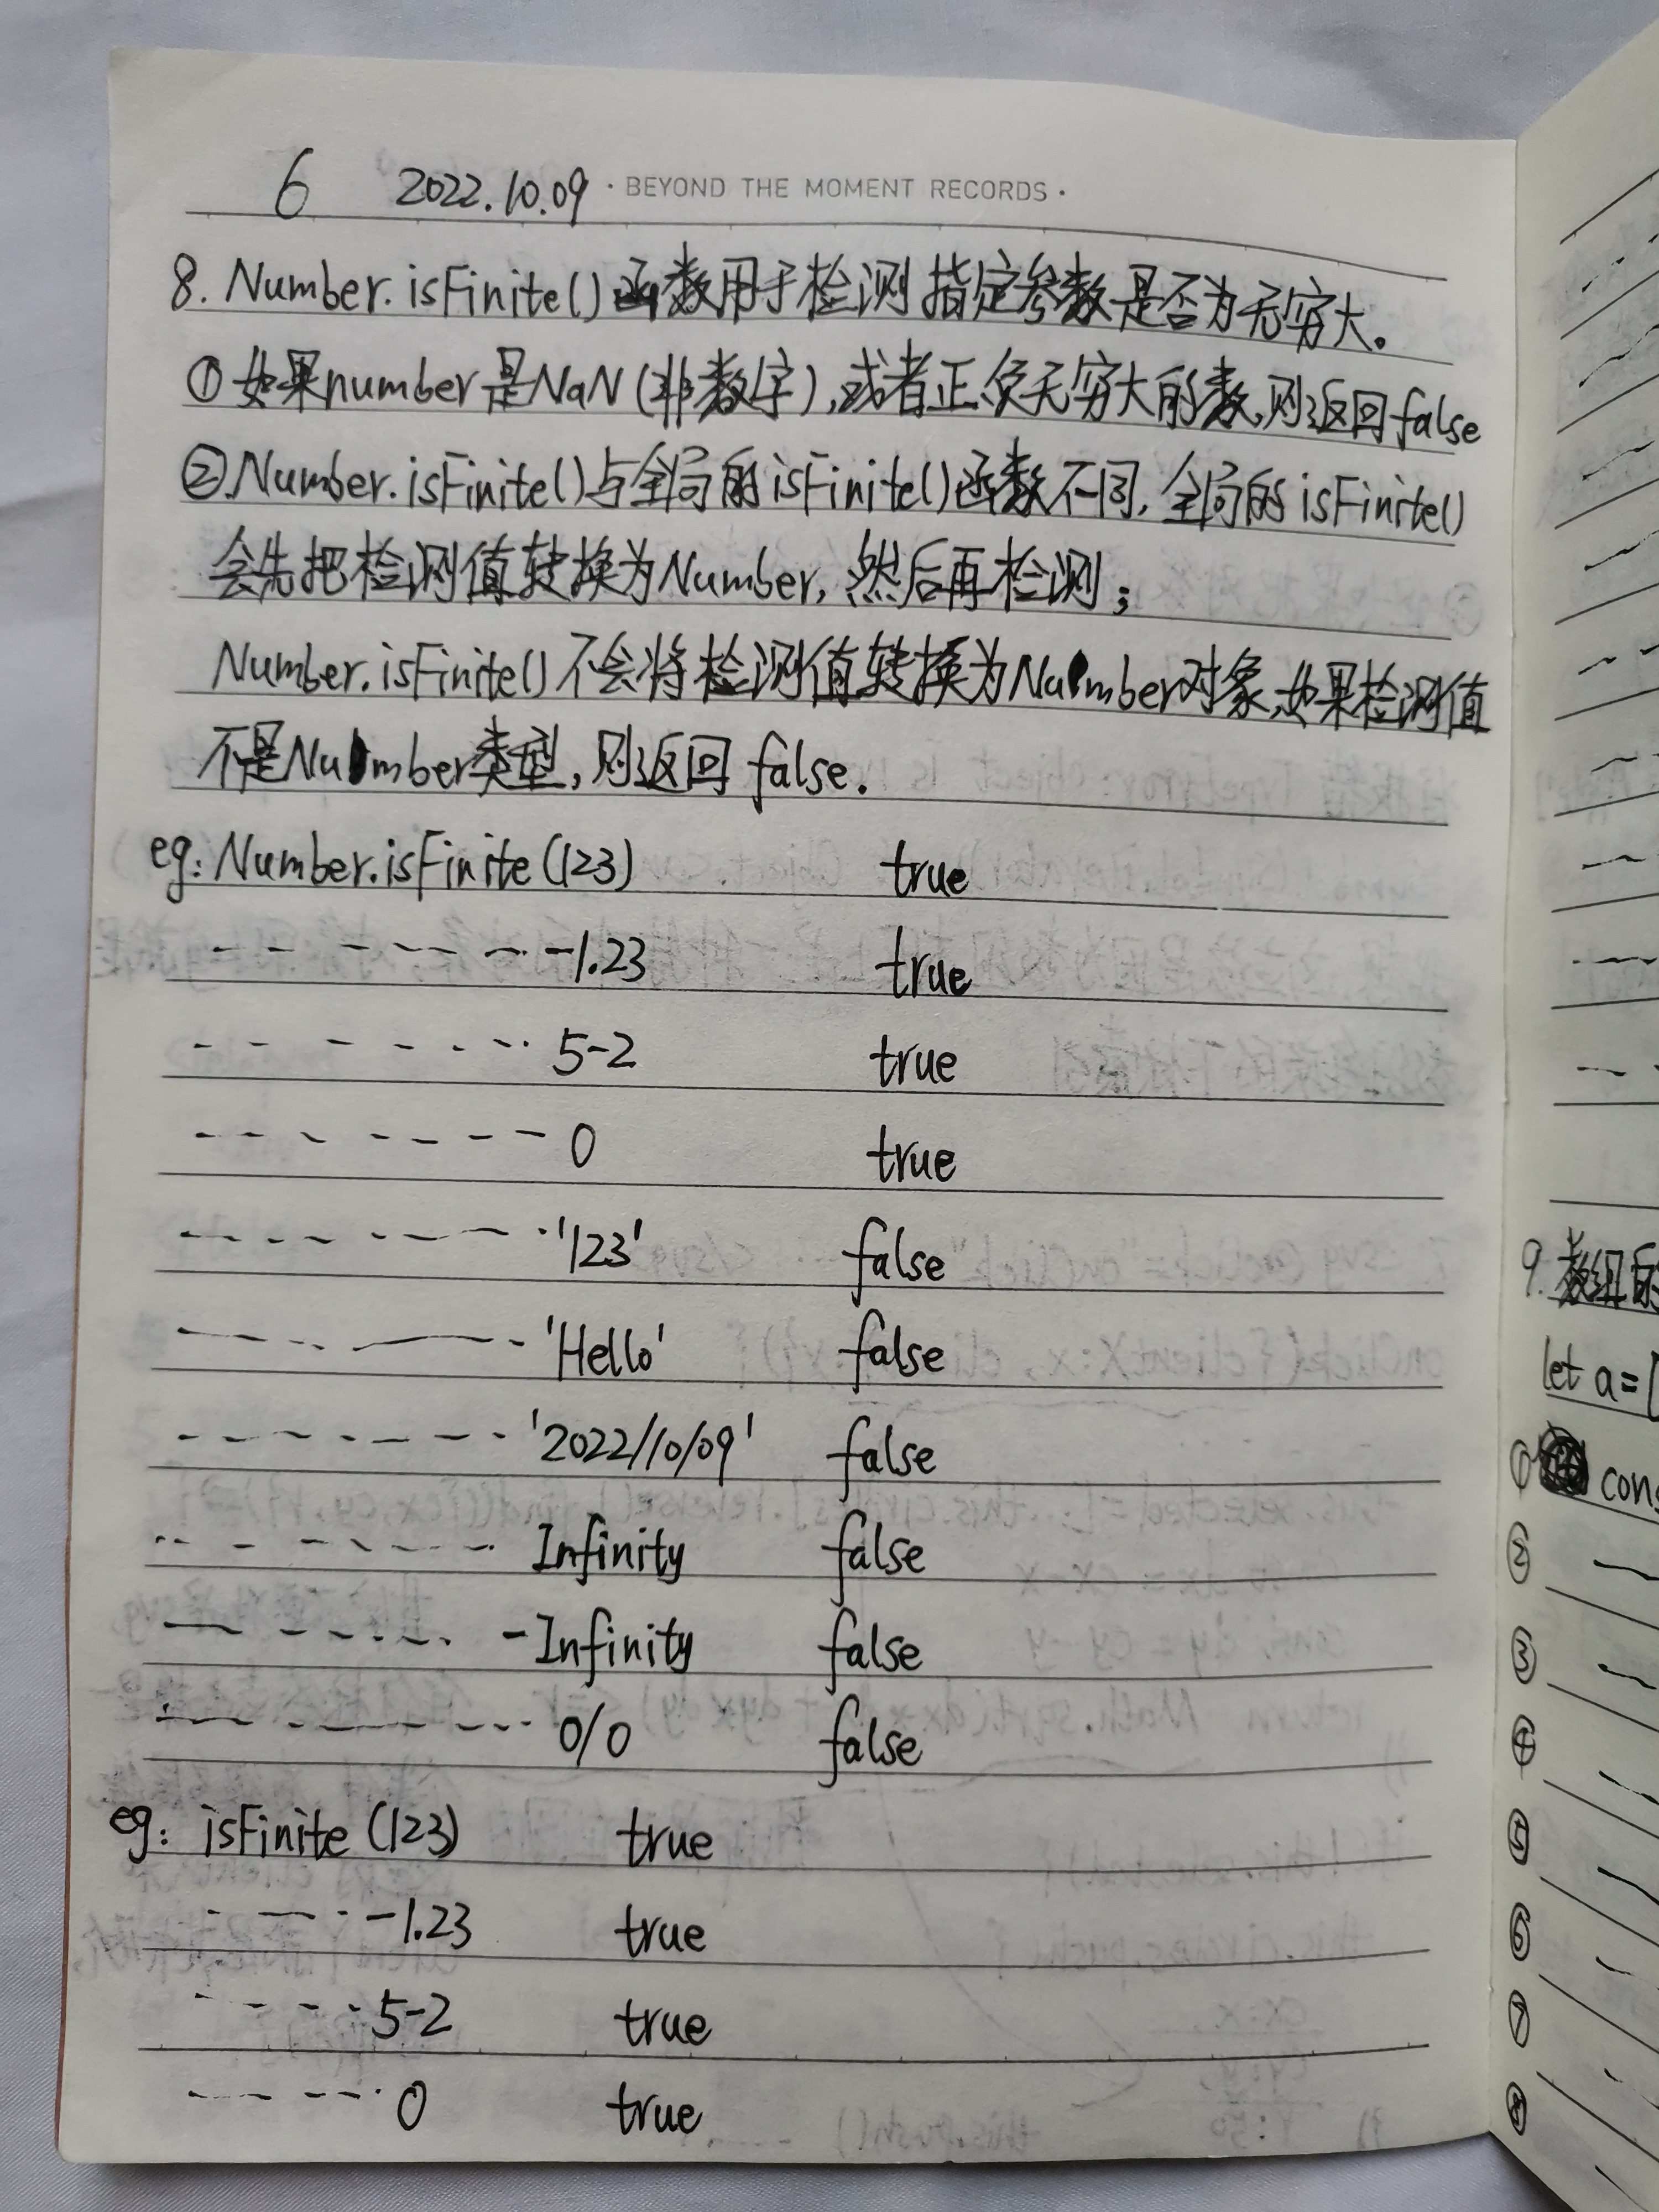 6 2022.10.09 · BEYOND THE MOMENT RECORDS ·
8. Number.isFinite()函数用于检测指定参数是否为无穷大。
①如果number是NaN(非数字),或者正负无穷大的数,则返回false
②.Number.isFinite()与全局的isFinite()函数不同,全局的isFinite()
会先把检测值转换为Number,然后再检测;
Number.isFinite()不会将检测值转换为Number对象,如果检测值
不是Number类型,则返回false.
eg: Number.isFinite(123) true
-1.23 true
5-2 true
0 true
'123' false
'Hello' false
'2022/10/09' false
Infinity false
-Infinity false
0/0 false
eg: isFinite(123) true
-1.23 true
5-2 true
0 true
9.数组的
let a=[
① cons
②
③
④
⑤
⑥
⑦
⑧